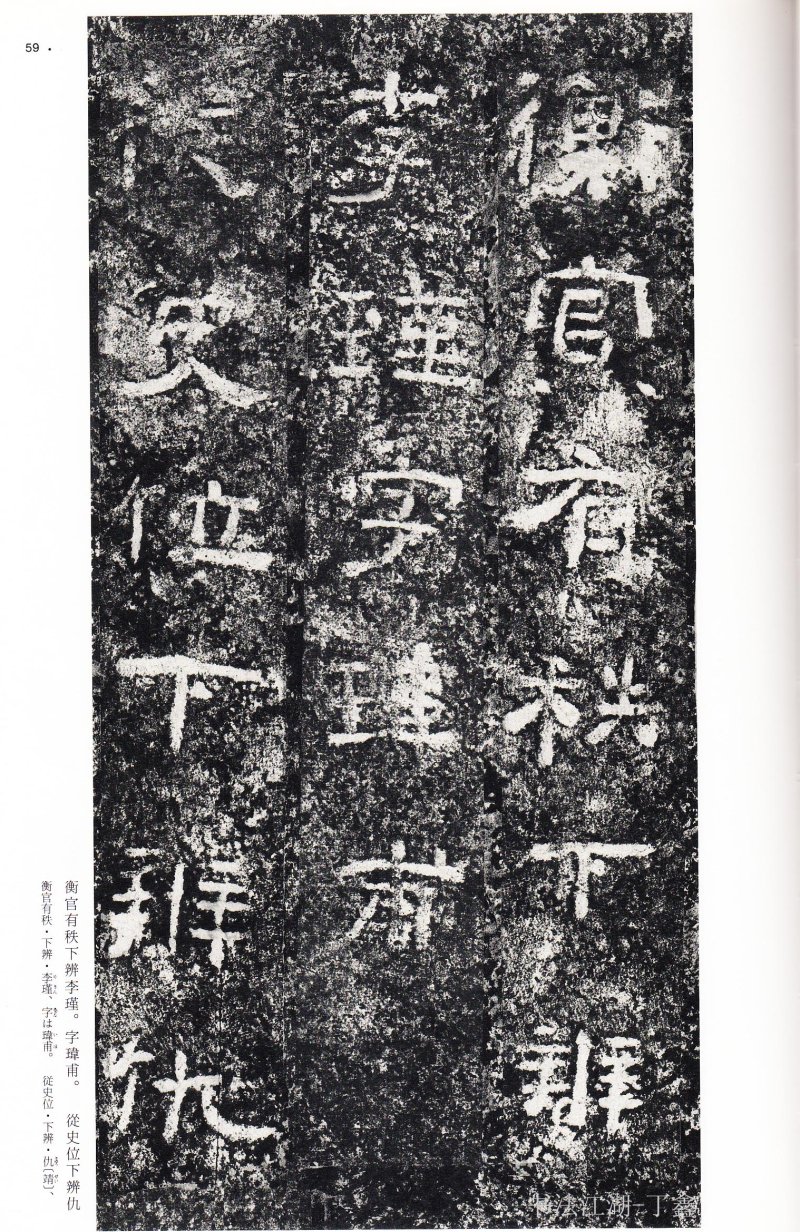 59・
衡官有秩下辨
李瑾字瑋甫
從史位下辨仇
衡官有秩下辨李瑾。字瑋甫。　從史位下辨仇
衡官有秩・下辨・李瑾、字は瑋甫。　從史位・下辨・仇〔靖〕、
书法江湖-丁鑫